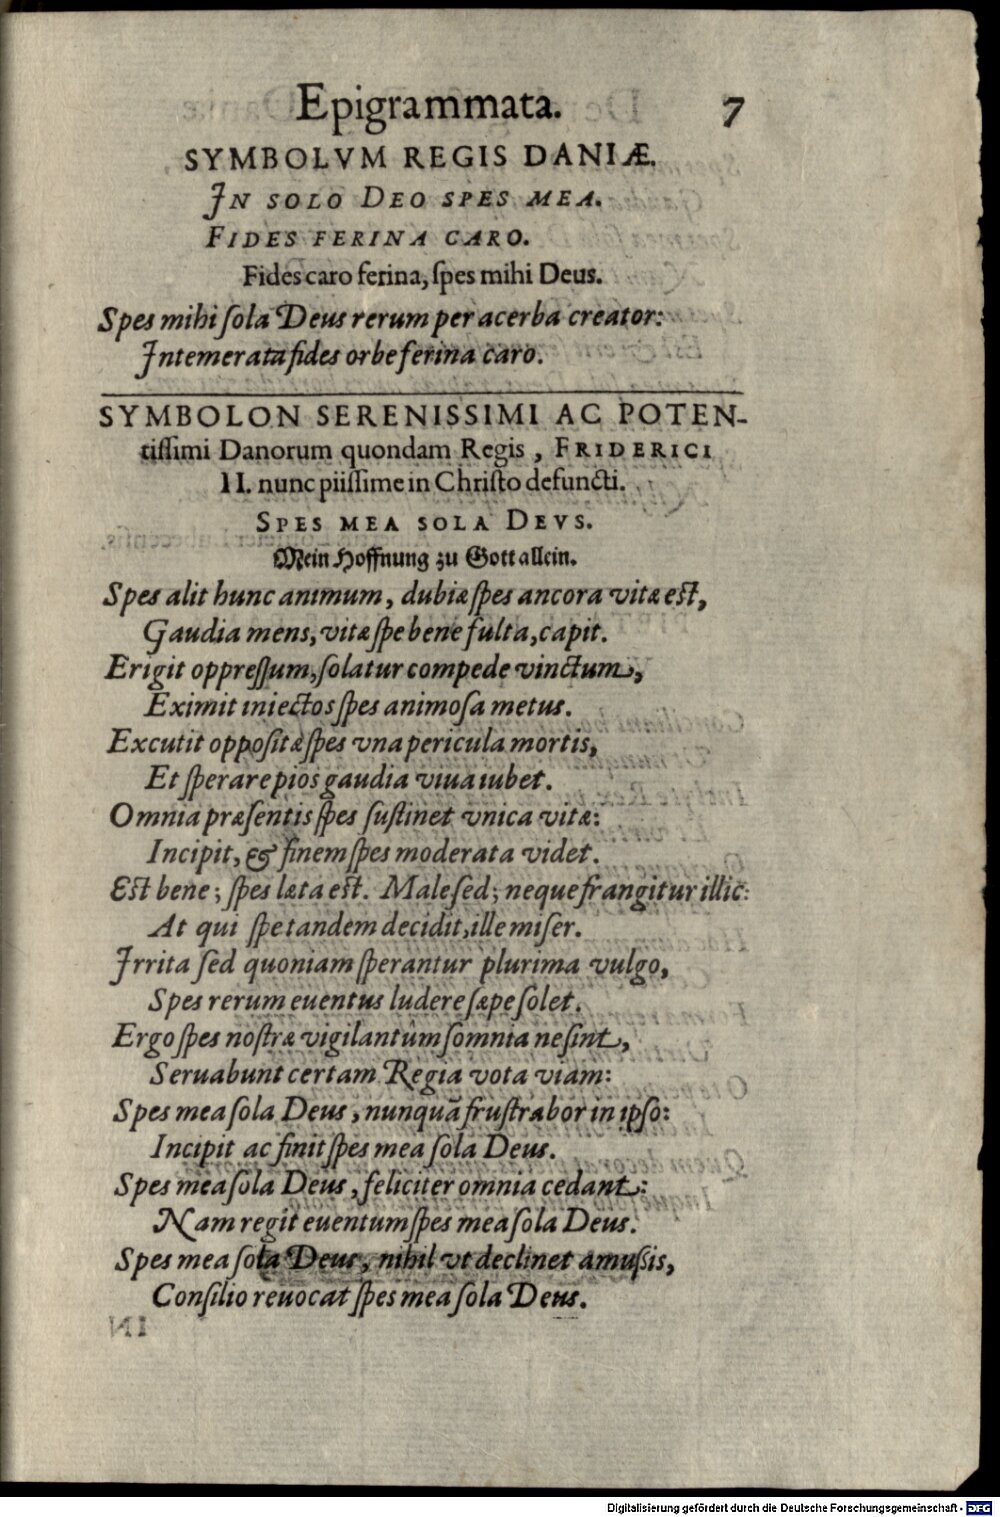 Epigrammata. 7
SYMBOLVM REGIS DANIÆ.
IN SOLO DEO SPES MEA.
FIDES FERINA CARO.
Fides caro ferina, ſpes mihi Deus.
Spes mihi ſola Deus rerum per acerba creator:
Intemerata fides orbe ferina caro.
SYMBOLON SERENISSIMI AC POTEN-
tiſſimi Danorum quondam Regis, FRIDERICI
II. nunc piiſſime in Chriſto defuncti.
SPES MEA SOLA DEVS.
Mein Hoffnung zu Gott allein.
Spes alit hunc animum, dubiæ ſpes ancora vitæ eſt,
Gaudia mens, vitæ ſpe bene fulta, capit.
Erigit oppreſſum, ſolatur compede vinctum,
Eximit iniectos ſpes animoſa metus.
Excutit oppoſitæ ſpes vna pericula mortis,
Et ſperare pios gaudia viua iubet.
Omnia præſentis ſpes ſuſtinet vnica vitæ:
Incipit, & finem ſpes moderata videt.
Eſt bene; ſpes læta eſt. Male ſed; neque frangitur illic:
At qui ſpe tandem decidit, ille miſer.
Irrita ſed quoniam ſperantur plurima vulgo,
Spes rerum euentus ludere ſæpe ſolet.
Ergo ſpes noſtræ vigilantûm ſomnia ne ſint,
Seruabunt certam Regia vota viam:
Spes mea ſola Deus, nunquã fruſtrabor in ipſo:
Incipit ac finit ſpes mea ſola Deus.
Spes mea ſola Deus, feliciter omnia cedant:
Nam regit euentum ſpes mea ſola Deus.
Spes mea ſola Deus, nihil vt declinet amuſsis,
Conſilio reuocat ſpes mea ſola Deus.
Digitalisierung gefördert durch die Deutsche Forschungsgemeinschaft - DFG